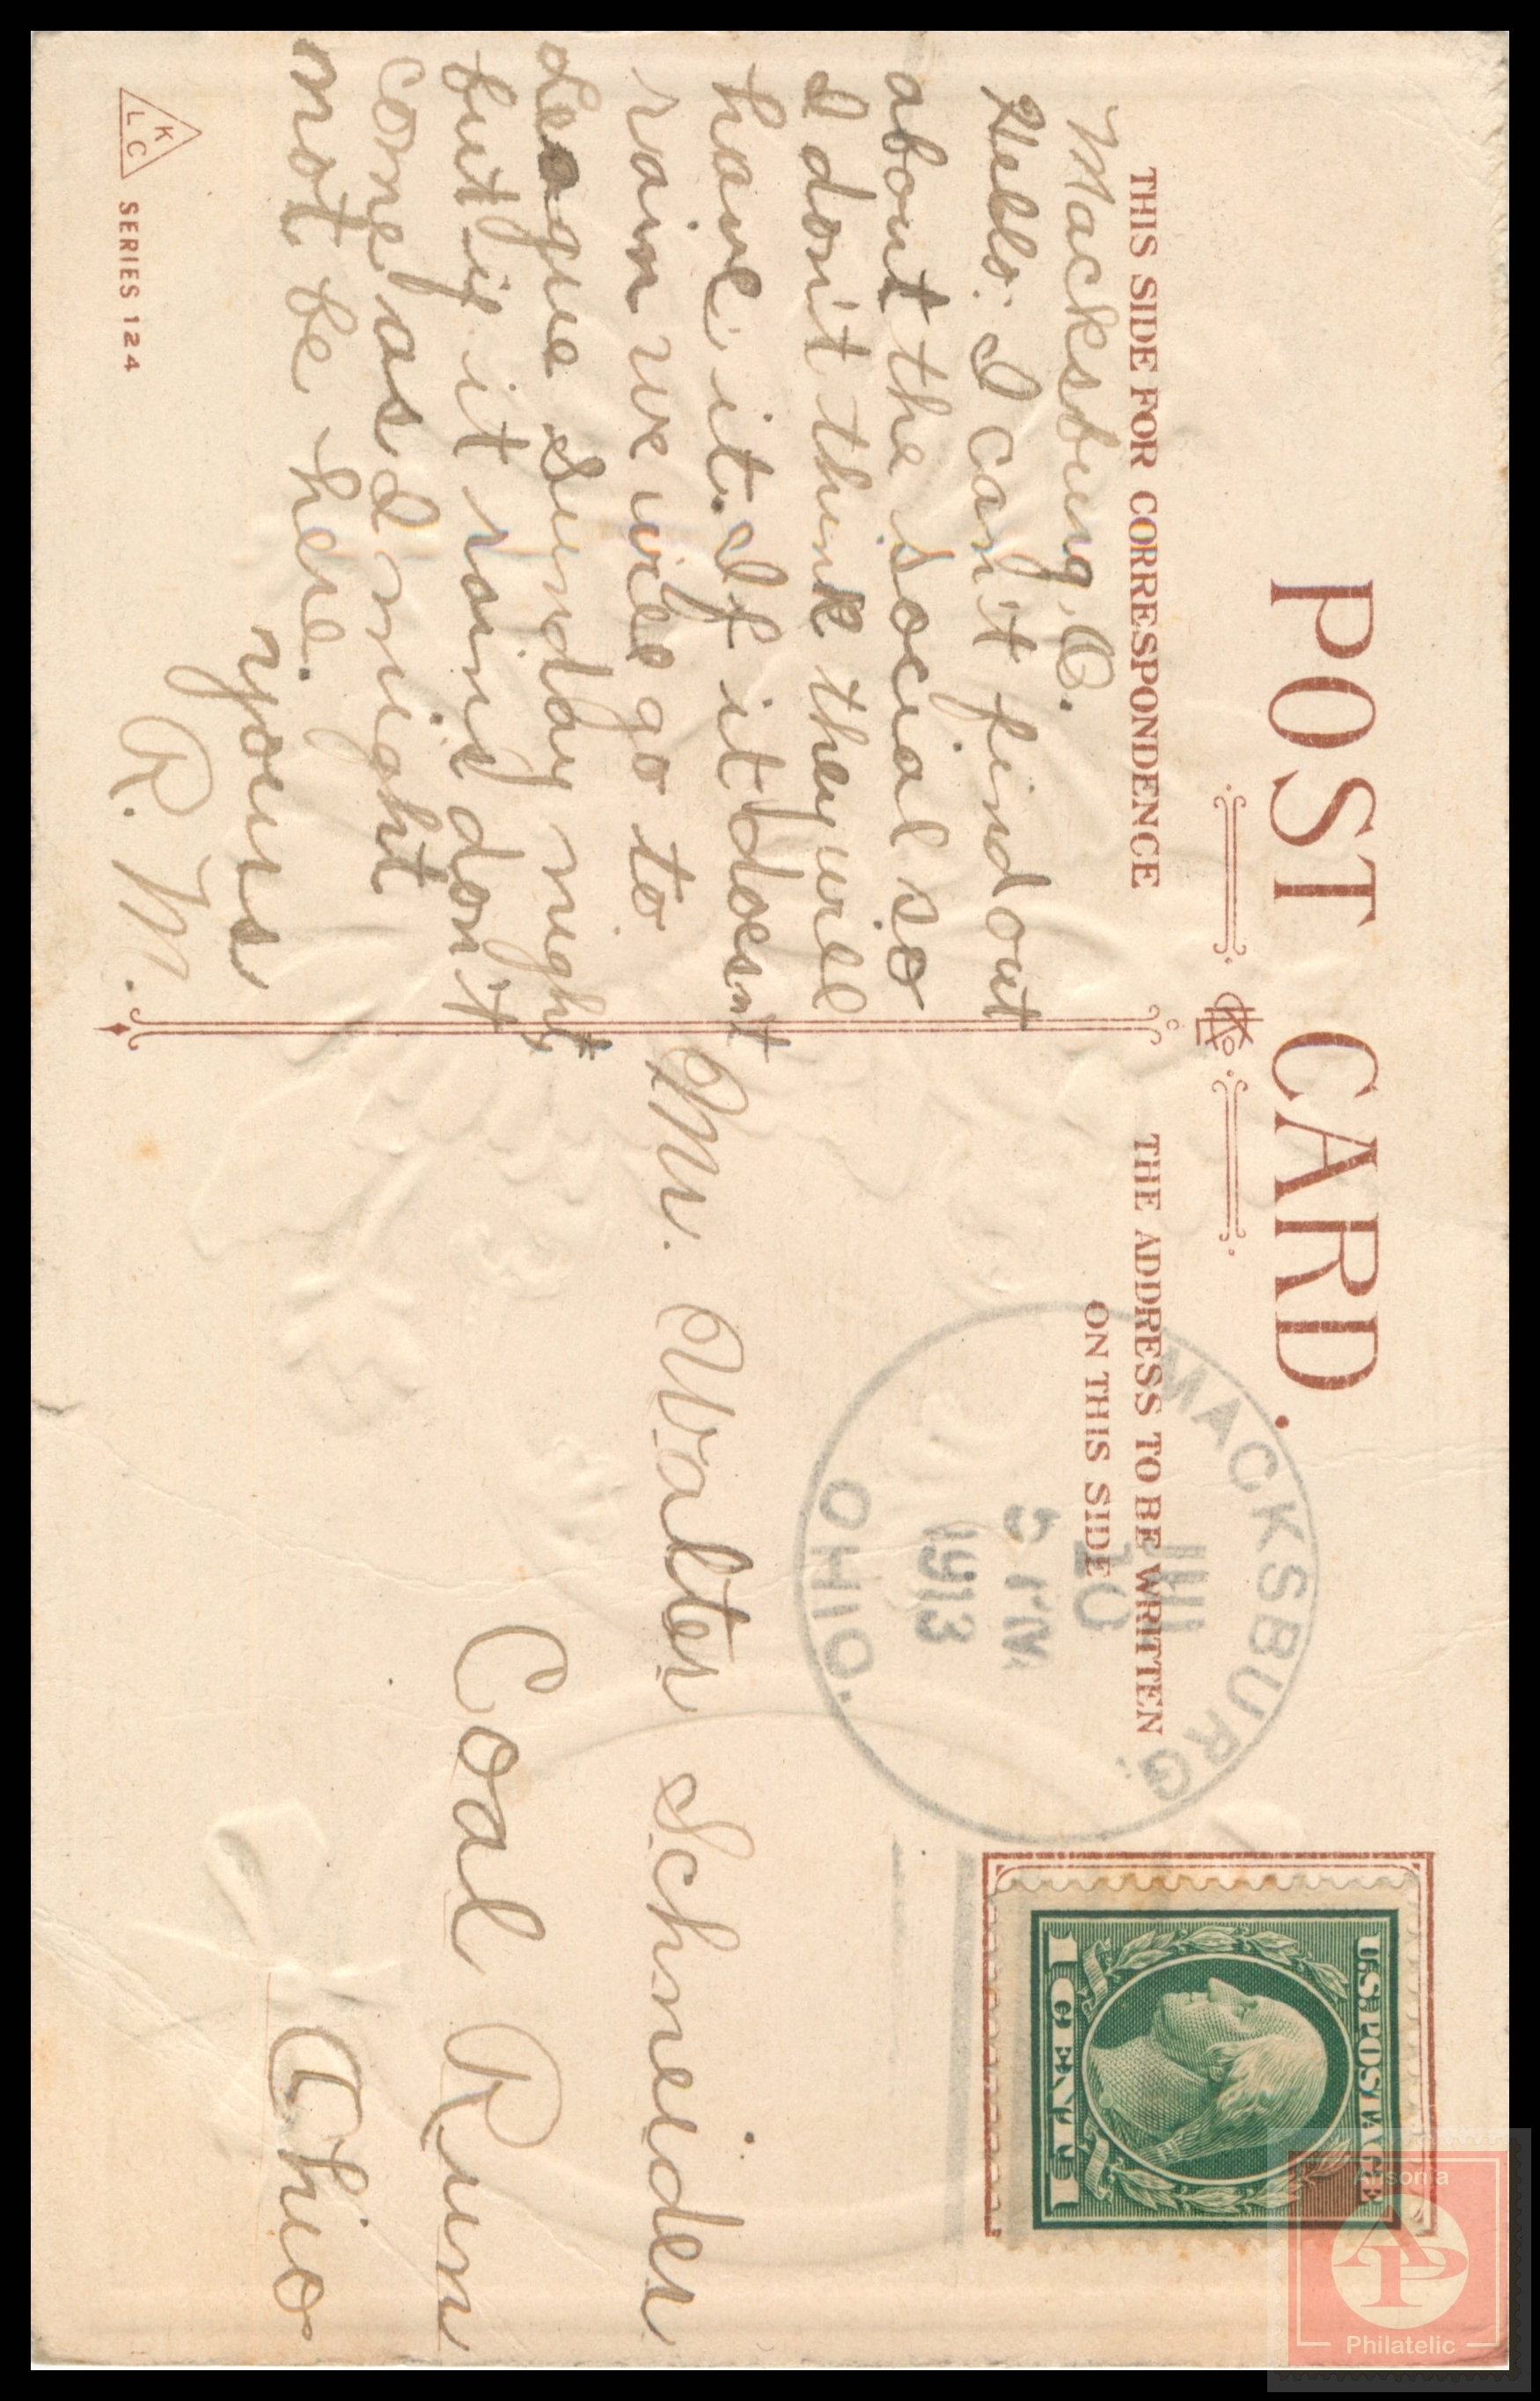 POST CARD.
THIS SIDE FOR CORRESPONDENCE
THE ADDRESS TO BE WRITTEN
ON THIS SIDE
Macksburg O.
Hello: I can't find out
about the social so
I don't think they will
have it. If it doesnt
rain we will go to
League Sunday night
but if it rains don't
come as I might
not be here.
yours
R. M.
KLC SERIES 124
MACKSBURG,
10
PM
1913
OHIO.
U.S. POSTAGE
1 CENT 1
Mr. Walter Schneider
Coal Run
Ohio
Ansonia
AP
Philatelic